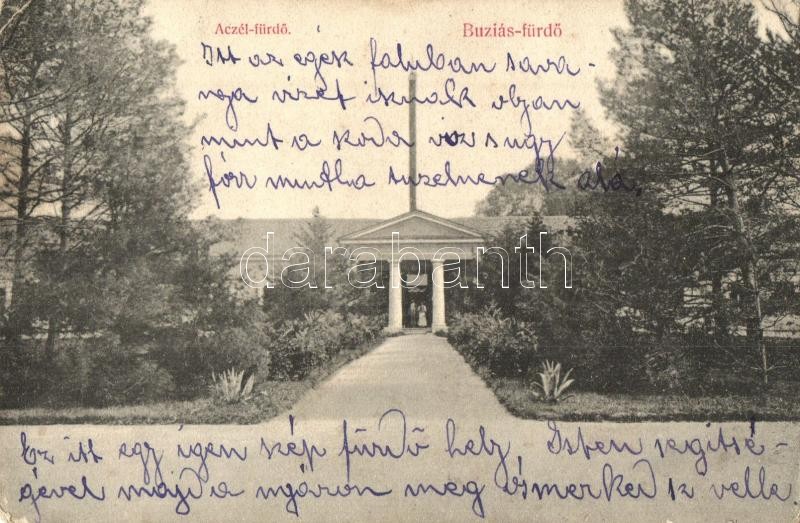 Aczél-fürdő. Buziás-fürdő
Itt az egék faluban sava-
nya vizet isznak olyan
mint a szoda viz s ugy
forr mintha tuzelnenek alá.
darabanth
Ez itt egy igen szép fürdő hely Isten segitsé-
gével majd a nyáron meg ösmerked sz velle.